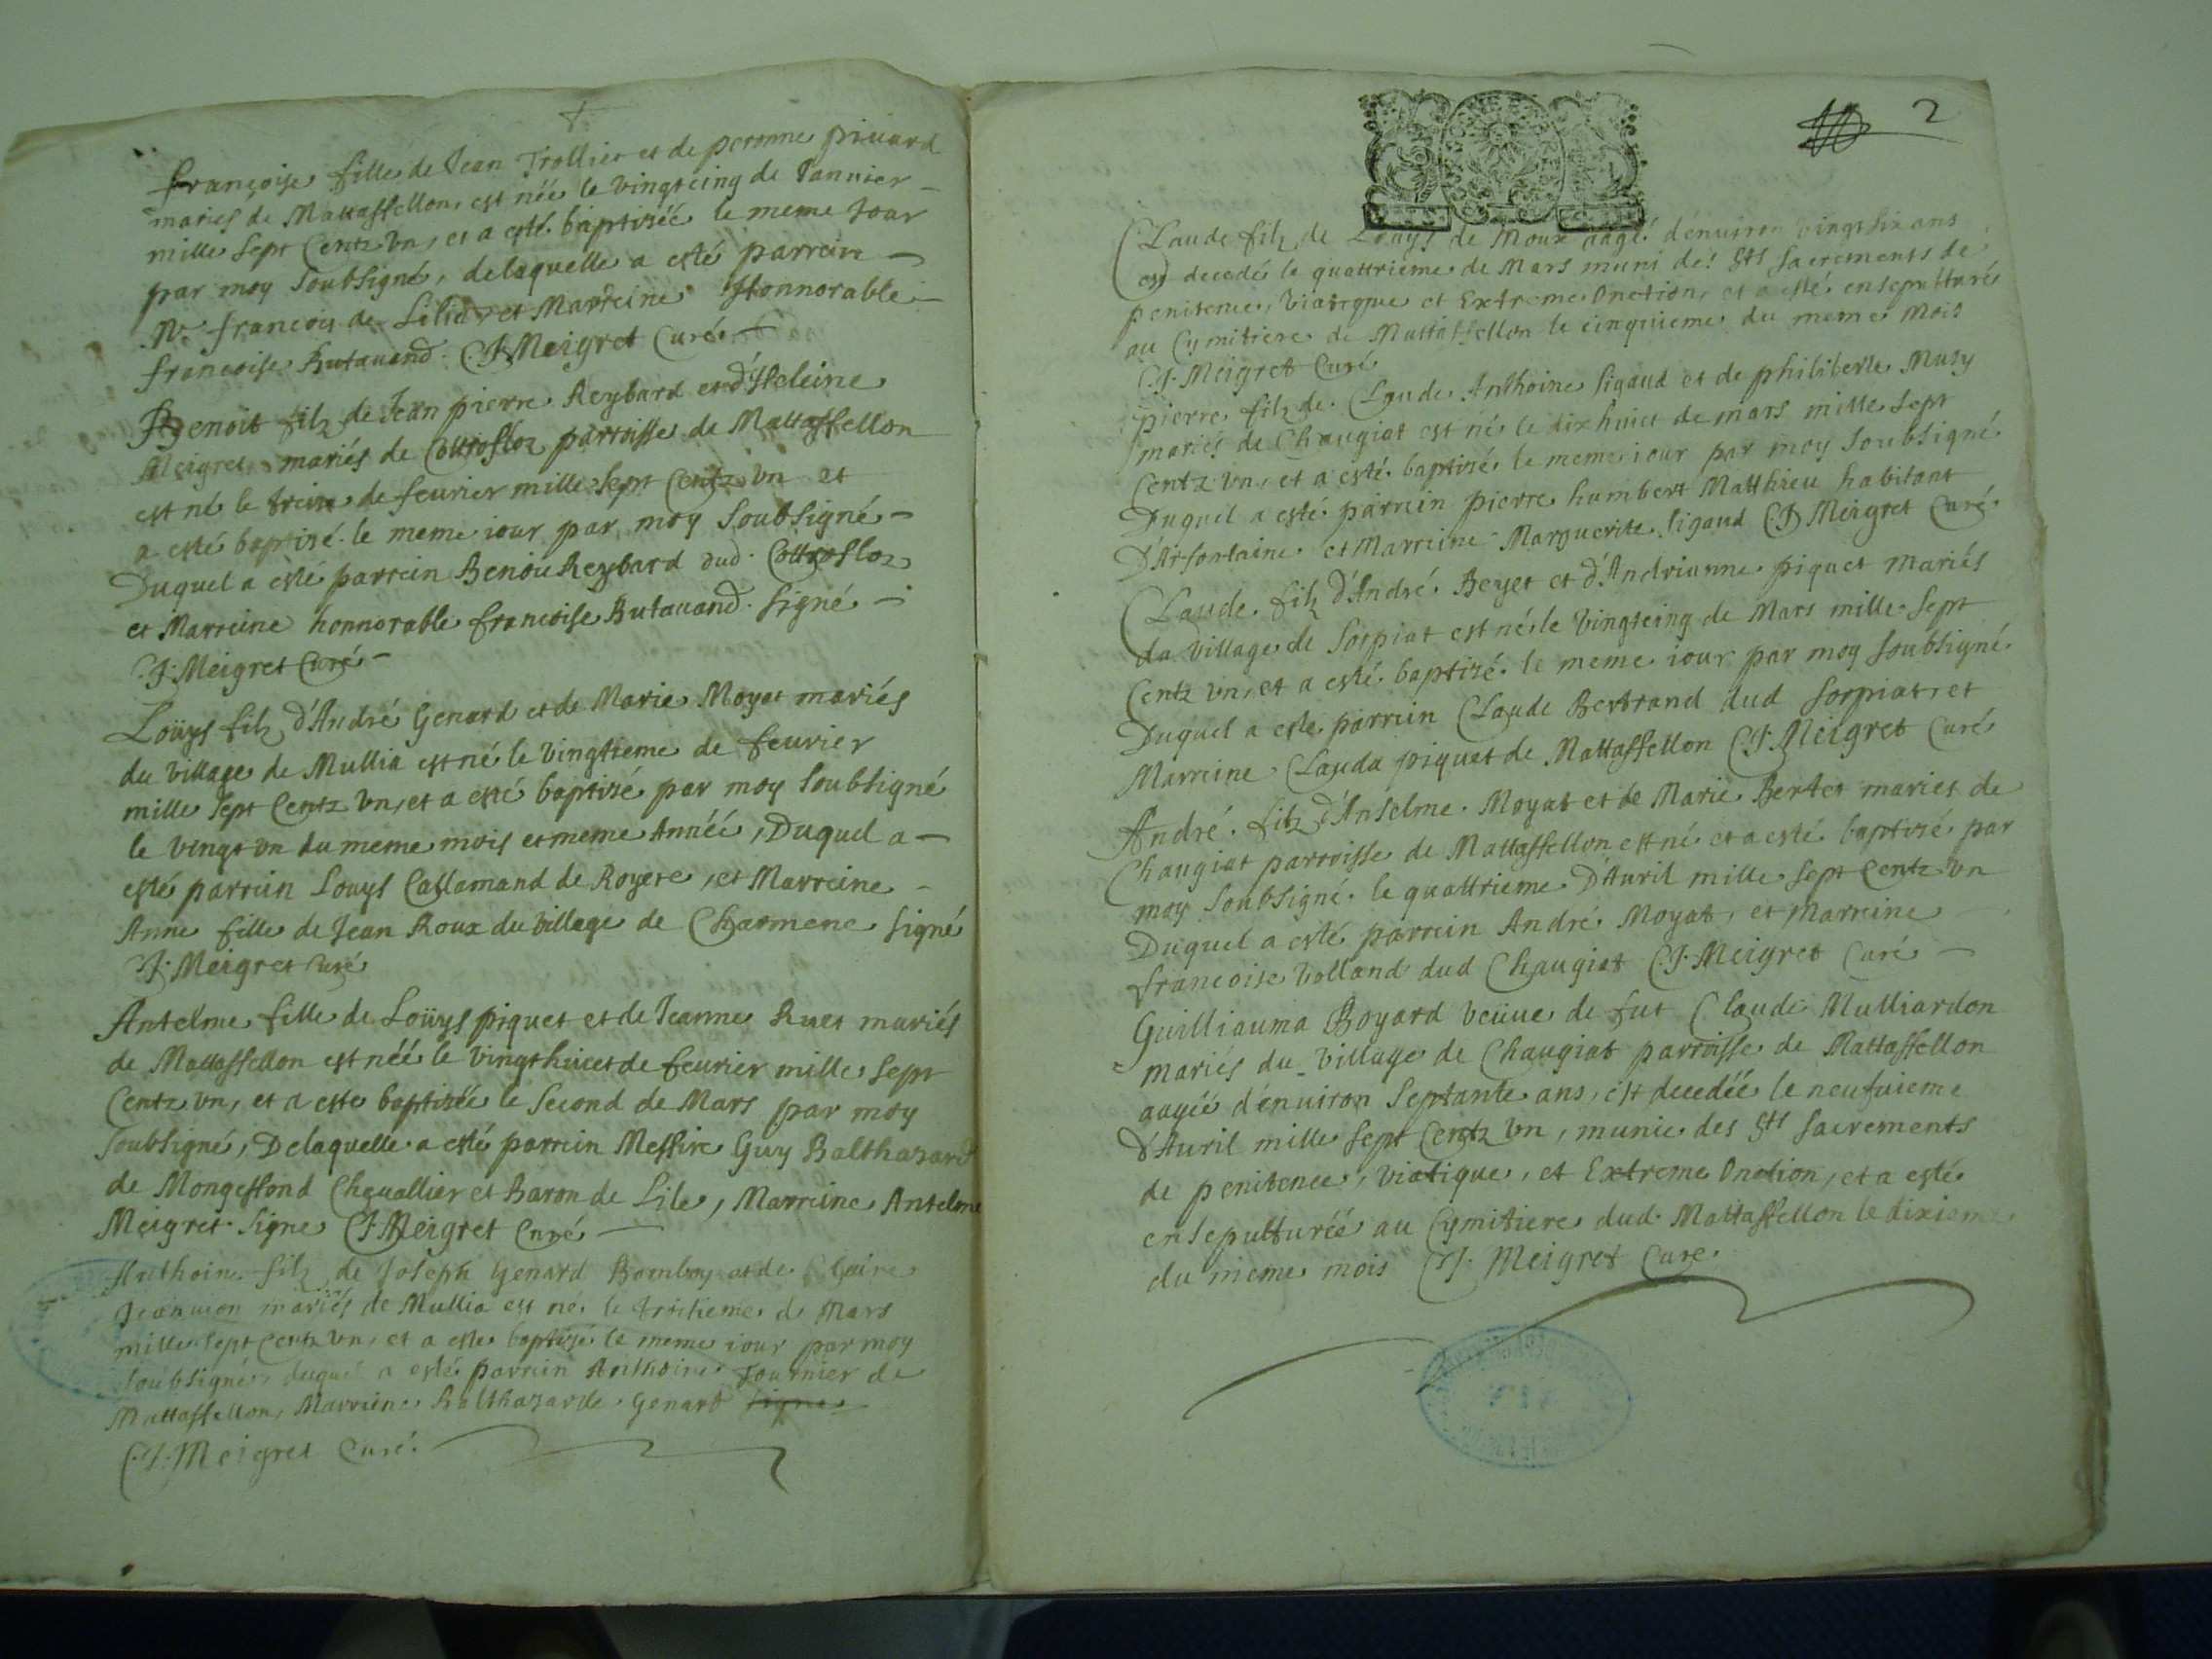 françoise fille de Jean Trollier et de peronne priuard
mariés de Mattaffellon, est néé le vingtcinq de Januier
mille sept Centz vn, et a esté baptiséé le meme jour
par moy soubsigné, delaquelle a esté parrein
francois de et Marreine Honnorable
francoise Butauand. C.J. Meigret Curé
Benoit filz de Jean pierre Reybard et d'Heleine
Meigret mariés de Cottrofloz parroisse de Mattaffellon
est né le treize de feurier mille sept Centz vn et
a esté baptizé le meme iour par moy soubsigné
Duquel a esté parrein Benoit Reybard dud. Cottrofloz
et Marreine honnorable francoise Butauand. signé
C.J. Meigret Curé
Loüys filz d'André Genard et de Marie Moyat mariés
du village de Mullia est né le vingtieme de feurier
mille sept Centz vn, et a esté baptizé par moy soubsigné
le vingt vn du meme mois et meme Annéé, Duquel a
esté parrein Louys Callamand de Royere, et Marreine
Anne fille de Jean Roux du village de Charmene signé
C.J. Meigret Curé
Antelme fille de Loüys piquet et de Jeanne Ruet mariés
de Mattaffellon est néé le vingthuict de feurier mille sept
Centz vn, et a esté baptiséé le second de Mars par moy
soubsigné, Delaquelle a esté parrein Messire Guy Balthazard
de Mongeffond Cheuallier et Baron de Lile, Marreine Antelme
Meigret. signe C.J. Meigret Curé
Anthoine filz de Joseph Genard Bomboy et de Claire
Jeannion mariés de Mullia est né le troisieme de Mars
mille sept Centz vn, et a esté baptizé le meme iour par moy
soubsigné, duquel a esté parrein Anthoine Tournier de
Mattaffellon, Marreine Balthazarde Genard signe
C.J. Meigret Curé.
2
Claude filz de Louys de Moux aagé d'enuiron vingt six ans
est decedé le quattrieme de Mars muni des Sts sacrements de
penitence, viatique et Extreme Onction, et a esté ensepulturé
au Cymitiere de Mattaffellon le cinquieme du meme Mois
C.J. Meigret Curé
pierre filz de Claude Anthoine sigaud et de philiberte Musy
mariés de Chaugiat est né le dixhuict de mars mille sept
Centz vn, et a esté baptizé le meme iour par moy soubsigné
Duquel a esté parrein pierre humbert Matthieu habitant
D'Arfontaine et Marreine Marguerite sigaud C.J. Meigret Curé.
Claude filz d'André Beyet et d'Andrianne piquet mariés
du village de Sorpiat est né le vingtcinq de Mars mille sept
Centz vn, et a esté baptizé le meme iour par moy soubsigné
Duquel a esté parrein Claude Bertrand dud Sorpiat, et
Marreine Clauda piquet de Mattaffellon C.J. Meigret Curé
André filz d'Anselme Moyat et de Marie Bertet mariés de
Chaugiat parroisse de Mattaffellon est né et a esté baptizé par
moy soubsigné le quattrieme D'Auril mille sept Centz vn
Duquel a esté parrein André Moyat, et Marreine
francoise Volland dud Chaugiat C.J. Meigret Curé
Guilliauma Boyard veüue de fut Claude Mulliardon
mariés du village de Chaugiat parroisse de Mattaffellon
aagéé d'enuiron septante ans, est decedéé le neufuieme
d'Auril mille sept Centz vn, munie des Sts sacrements
de penitence, viatique, et Extreme Onction, et a esté
ensepulturéé au Cymitiere dud. Mattaffellon le dixieme
du meme mois C.J. Meigret Curé.